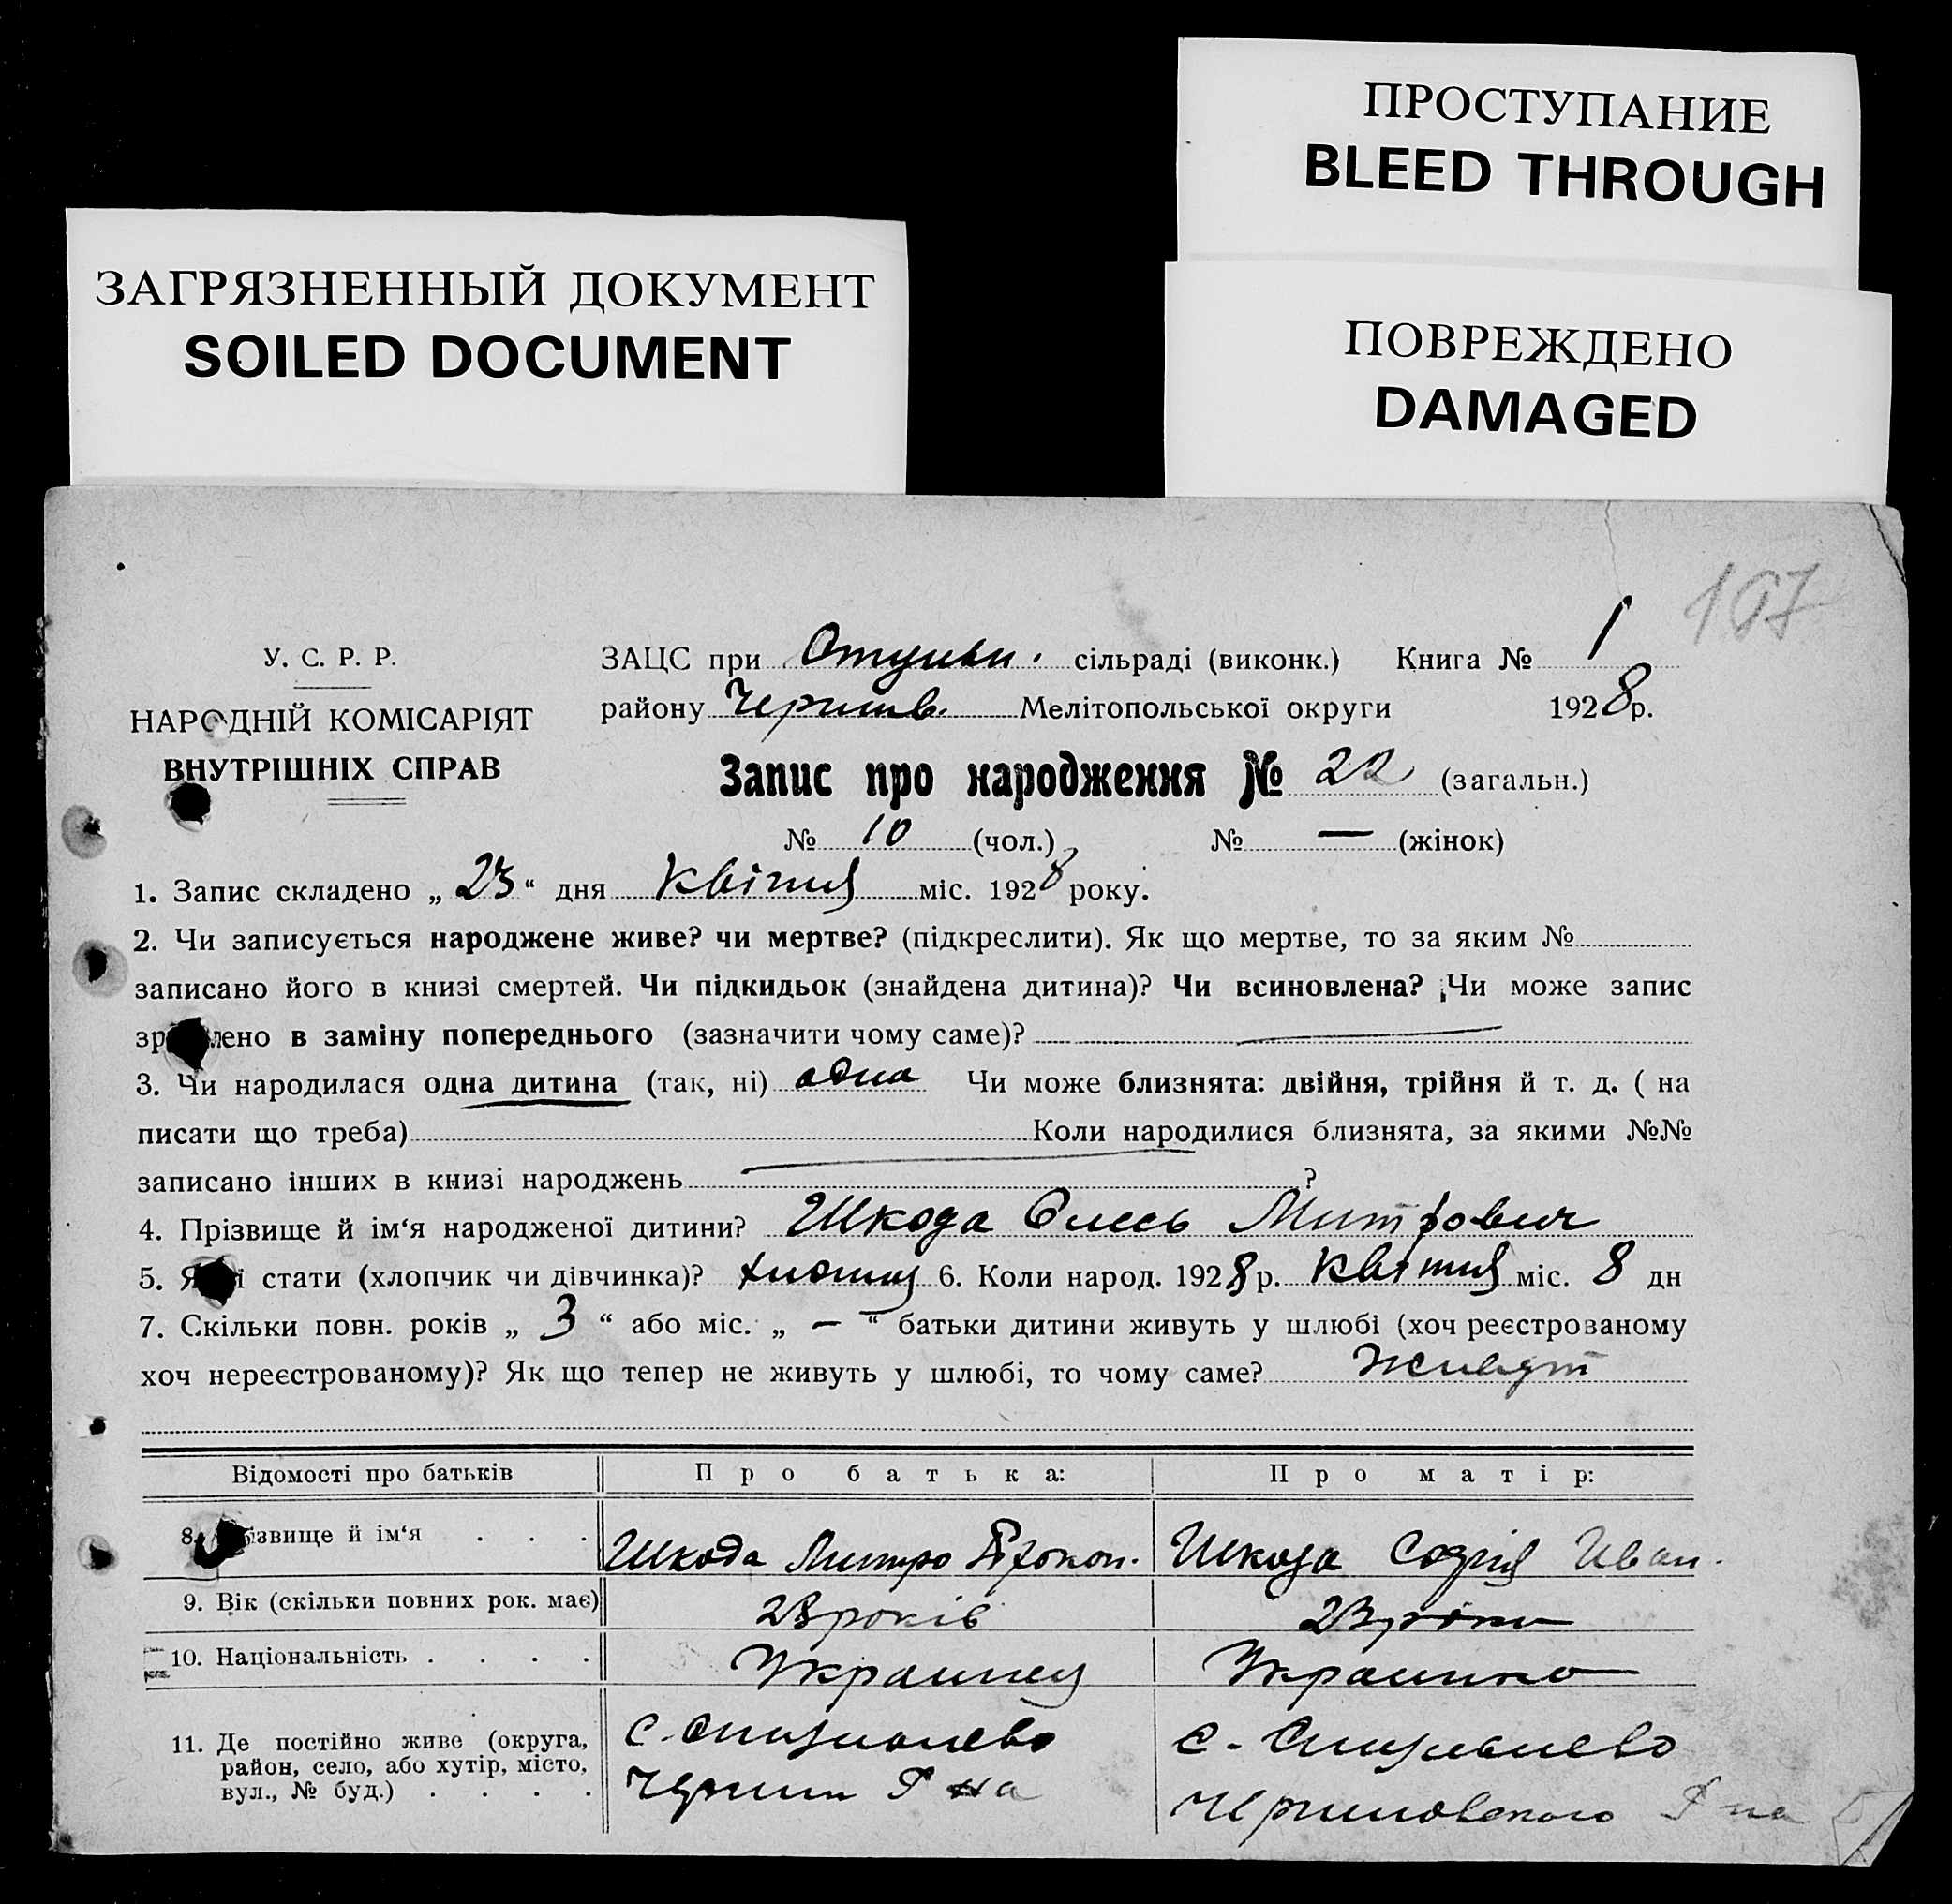 ПРОСТУПАНИЕ
BLEED THROUGH
ЗАГРЯЗНЕННЫЙ ДОКУМЕНТ
SOILED DOCUMENT
ПОВРЕЖДЕНО
DAMAGED
197
У. С. Р. Р.
НАРОДНІЙ КОМІСАРІЯТ
ВНУТРІШНІХ СПРАВ
ЗАЦС при сільраді (виконк.) Книга № 1
району Черниг. Мелітопольської округи 1928р.
Запис про народження № 22 (загальн.)
№ 10 (чол.) № — (жінок)
1. Запис складено „ 23 “ дня Квітня міс. 1928 року.
2. Чи записується народжене живе? чи мертве? (підкреслити). Як що мертве, то за яким №
записано його в книзі смертей. Чи підкидьок (знайдена дитина)? Чи всиновлена? Чи може запис
зр лено в заміну попереднього (зазначити чому саме)?
3. Чи народилася одна дитина (так, ні) одна Чи може близнята: двійня, трійня й т. д. ( на
писати що треба) Коли народилися близнята, за якими №№
записано інших в книзі народжень ?
4. Прізвище й ім‘я народженої дитини? Шкода Олесь Митрович
5. Я ї стати (хлопчик чи дівчинка)? 6. Коли народ. 1928р. Квітня міс. 8 дн
7. Скільки повн. років „ 3 “ або міс. „ — “ батьки дитини живуть у шлюбі (хоч реєстрованому
хоч нереєстрованому)? Як що тепер не живуть у шлюбі, то чому саме? Живут
Відомості про батьків П р о б а т ь к а: П р о м а т і р:
8. ізвище й ім‘я . . . Шкода Митро Прокоп. Шкода Софія Иван.
9. Вік (скільки повних рок. має) 28 років 23 роки
10. Національність . . . . Украинец Украинка
11. Де постійно живе (округа,
район, село, або хутір, місто,
вул., № буд.) . . . .
с.
Р на
с.
Р на